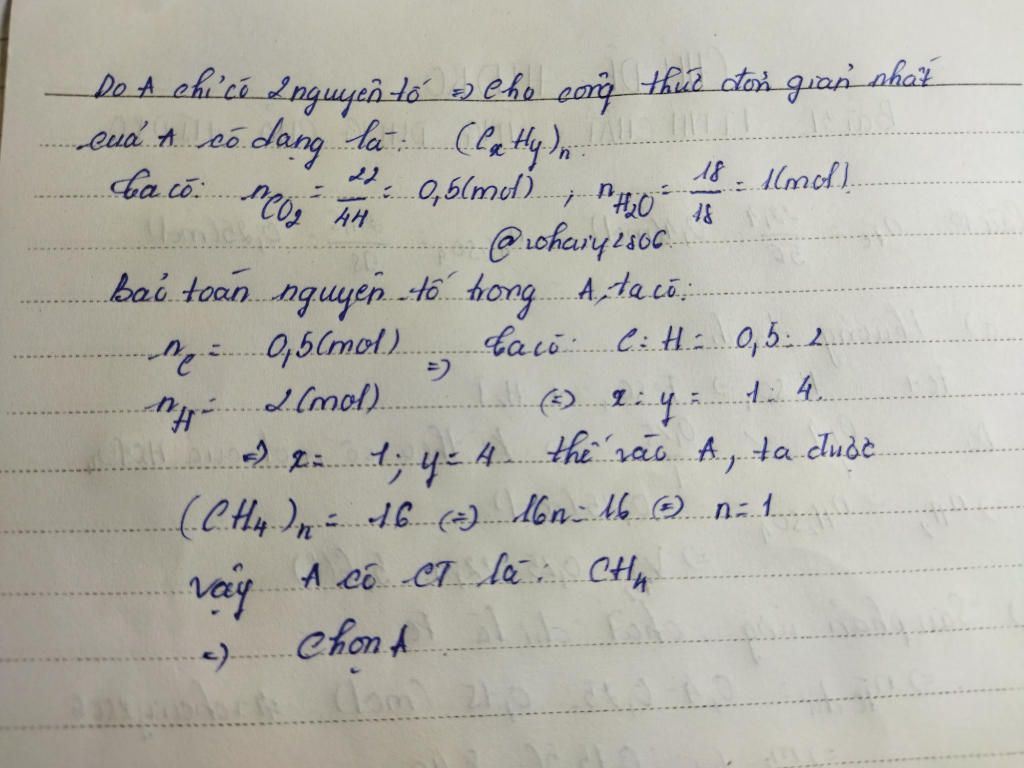 Do A chỉ có 2 nguyên tố => Cho công thức đơn giản nhất
của A có dạng là: (CxHy)n.
Ta có: nCO2 = 22/44 = 0,5(mol) ; nH2O = 18/18 = 1(mol).
@rohary2806
Bảo toàn nguyên tố trong A, ta có:
nC = 0,5(mol) => Ta có: C:H = 0,5:2
nH = 2(mol) (=) x:y = 1:4.
=> x= 1; y= 4. thế vào A, ta được
(CH4)n = 16 (=) 16n=16 (=) n=1
vậy A có CT là: CH4
=> Chọn A.